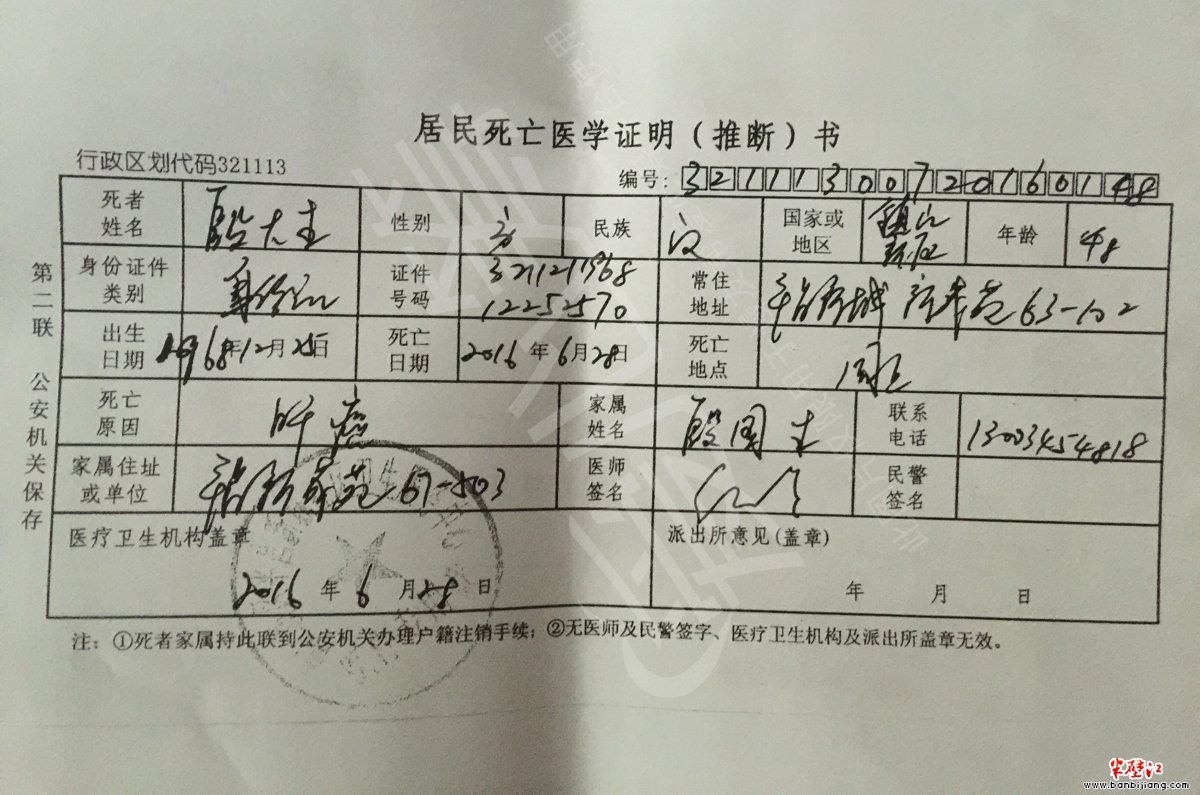 居民死亡医学证明（推断）书
行政区划代码321113
编号: 321113007201600148
死者姓名 殷大生 性别 男 民族 汉 国家或地区 年龄 48
身份证件类别 身份证 证件号码 321121196812252570 常住地址 63-102
出生日期 1968年12月25日 死亡日期 2016年6月28日 死亡地点
死亡原因 肝癌 家属姓名 殷国生 联系电话 13003454818
家属住址或单位 67-503 医师签名 民警签名
医疗卫生机构盖章 派出所意见(盖章)
2016年6月28日 年 月 日
注: ①死者家属持此联到公安机关办理户籍注销手续; ②无医师及民警签字、医疗卫生机构及派出所盖章无效。
第二联 公安机关保存
半壁江
www.banbijiang.com